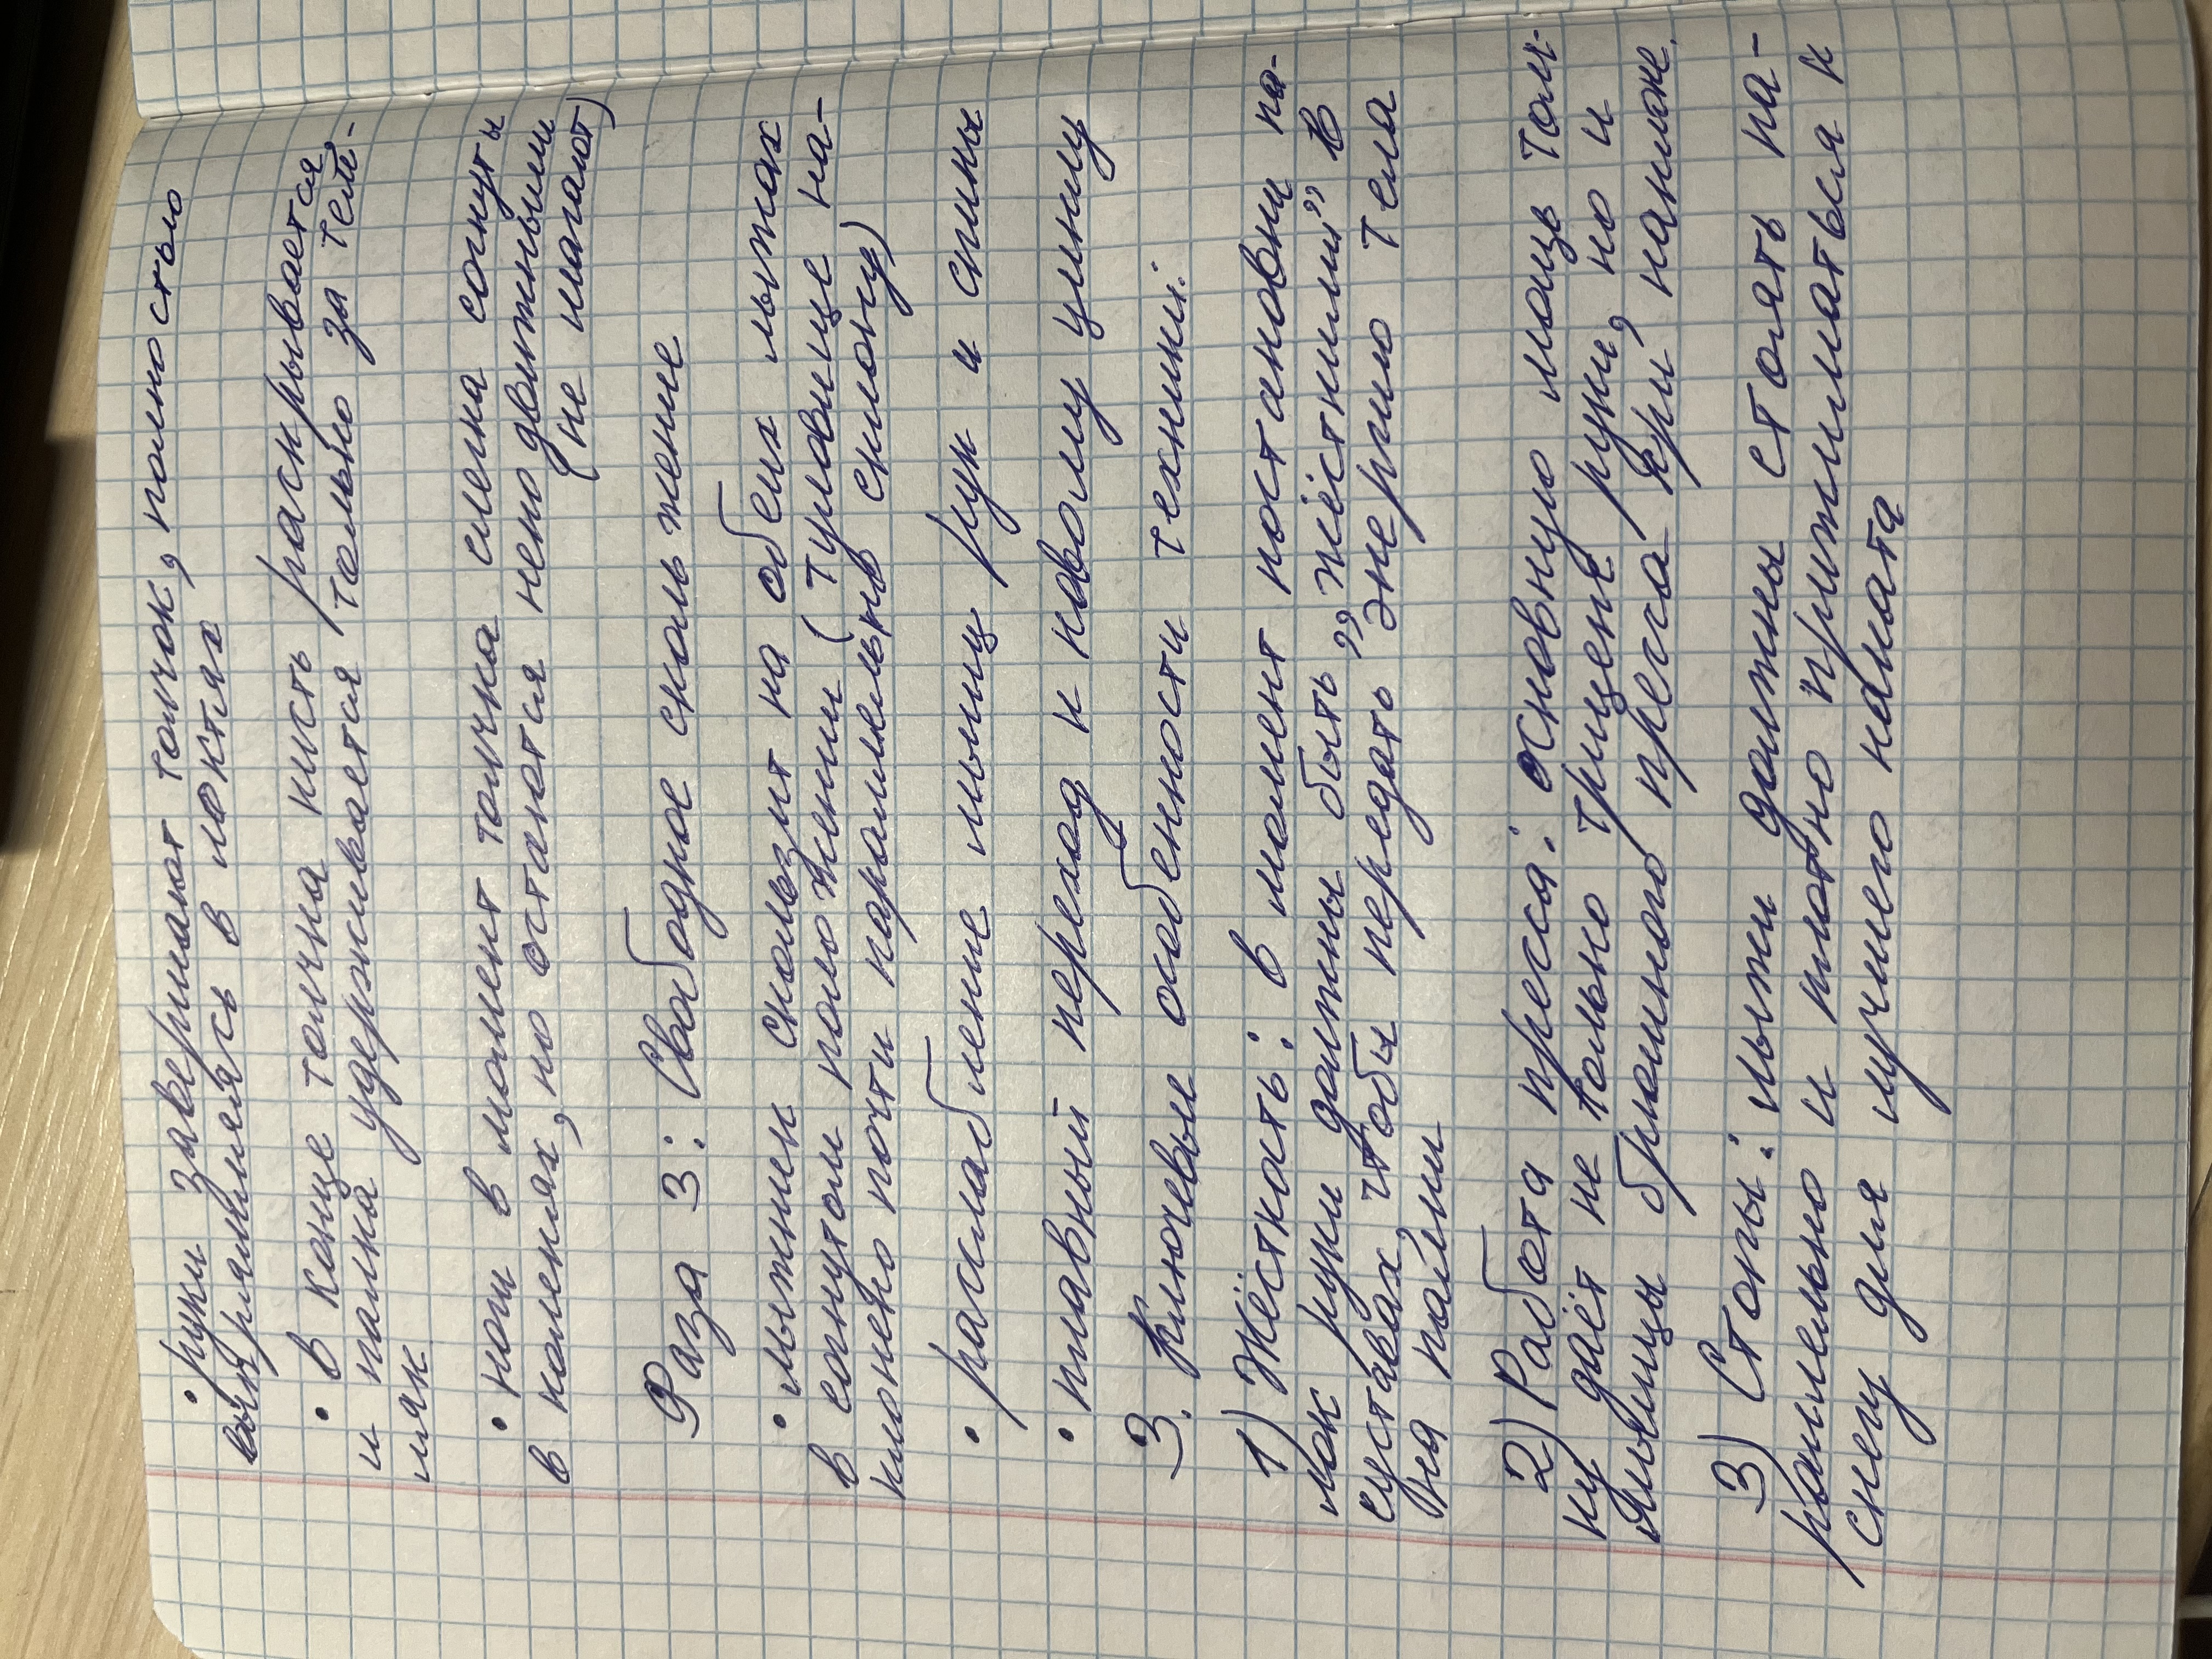 • руки завершают толчок, полностью
выпрямляясь в локтях
• в конце толчка кисть раскрывается,
и палка удерживается только за тем-
ляк
• ноги в момент толчка слегка согнуты
в коленях, но остаются неподвижными
(не шагают)
Фаза 3: Свободное скольжение
• лыжник скользит на обеих лыжах
в согнутом положении (туловище на-
клонено почти параллельно склону)
• расслабление мышц рук и спины
• плавный переход к новому циклу
3. Ключевые особенности техники:
1) Жёсткость: в момент постановки па-
лок руки должны быть „жёсткими” в
суставах, чтобы передать энергию тела
на палки
2) Работа пресса: основную мощь толч-
ку даёт не только трицепс руки, но и
мышцы брюшного пресса при нажиме.
3) Стопы: лыжи должны стоять па-
раллельно и плотно прижиматься к
снегу для лучшего наката